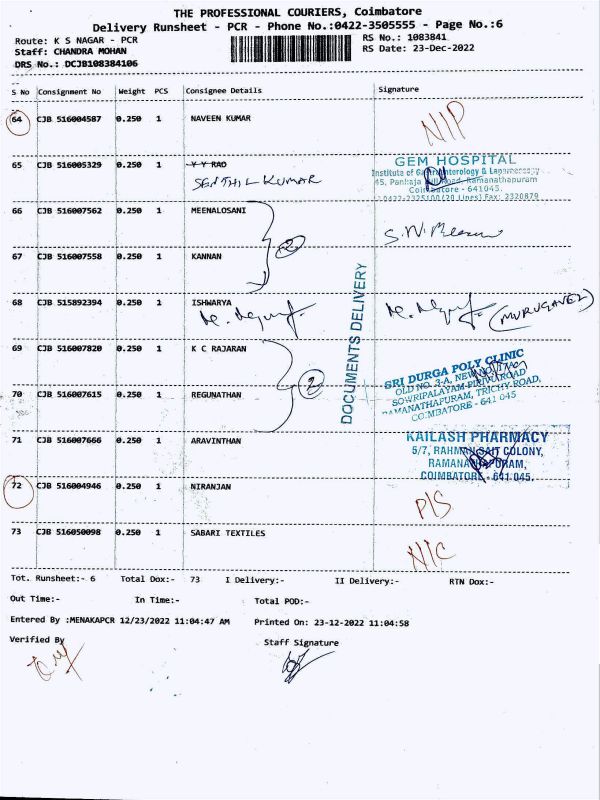 THE PROFESSIONAL COURIERS, Coimbatore
Delivery Runsheet - PCR - Phone No.:0422-3505555 - Page No.:6
Route: K S NAGAR - PCR
RS No.: 1083841
Staff: CHANDRA MOHAN
RS Date: 23-Dec-2022
DRS No.: DCJB108384106
S No Consignment No Weight PCS Consignee Details Signature
64 CJB 516004587 0.250 1 NAVEEN KUMAR N/P
65 CJB 516005329 0.250 1 Y Y RAO
SENTHIL KUMAR
GEM HOSPITAL
Institute of Gastroenterology & Laparoscopy
45, Pankaja Mill Road, Ramanathapuram
Coimbatore - 641045.
0422-2325100 (20 Lines) Fax: 2320879
66 CJB 516007562 0.250 1 MEENALOSANI
2
67 CJB 516007558 0.250 1 KANNAN
68 CJB 515892394 1 ISHWARYA
(MURUGAVEL)
DOCUMENTS DELIVERY
69 CJB 516007820 0.250 1 K C RAJARAN
2
SRI DURGA POLY CLINIC
OLD NO. 3-A,
SOWRIPALAYAM PIRIVU ROAD
RAMANATHAPURAM, TRICHY ROAD,
COIMBATORE - 641 045
70 CJB 516007615 0.250 1 REGUNATHAN
71 CJB 516007666 0.250 1 ARAVINTHAN
KAILASH PHARMACY
5/7, RAHMAN SAIT COLONY,
RAMANATHAPURAM,
COIMBATORE - 641 045.
72 CJB 516004946 0.250 1 NIRANJAN P/S
73 CJB 516050098 0.250 1 SABARI TEXTILES N/C
Tot. Runsheet:- 6 Total Dox:- 73 I Delivery:- II Delivery:- RTN Dox:-
Out Time:- In Time:- Total POD:-
Entered By :MENAKAPCR 12/23/2022 11:04:47 AM Printed On: 23-12-2022 11:04:58
Verified By Staff Signature